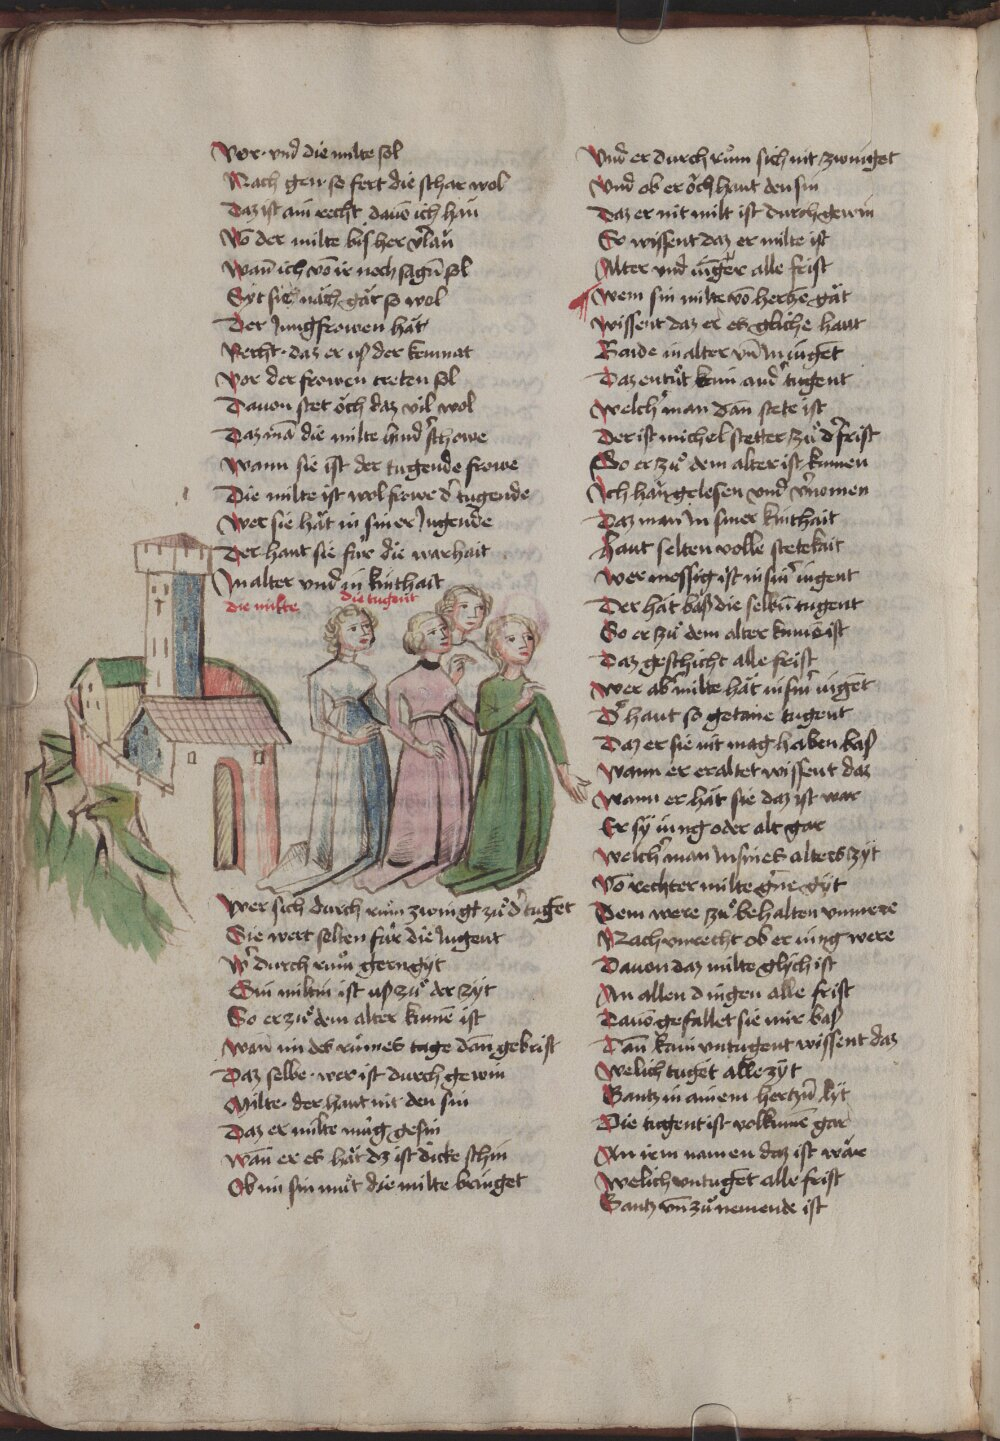 Vor· vnd die milte sol
Nach gen so fert die schar wol
Daz ist ain recht dauō ich han
Vō der milte bis her v̓lān
Wan̄ ich vō ir noch sagn̄ sol
Syt sie nǎch gǎt so wol
Der Jungfrowen hǎt
Recht· daz er uſ der kemnat
Vor der frowen treten sol
Dauon stet ǒch daz vil wol
Daz mā die milte hind̓ schowe
Wann sie ist der tugende frowe
Die milte ist wol frowe d̓ tugende
Wer sie hǎt in siner Jugende
Der hant sie fúr die warhait
In alter vnd in kinthait
die milte
die tugent
Wer sich durch rům zwingt zů d̓ tuget
Sie wert selten fúr die Jugent
W̓ durch rům gern gyt
Sin miltin ist uſ zů der zyt
So er zů dem alter kumē ist
Wan im des růmes tage dan gebrist
Daz selbe· wer ist durch gewin
Milte· der hant nit den sin
Daz er milte mǔg gesin
Wān er es hǎt dz ist dicke schin
Ob im sin mǔt die milte bringet
Vnd er durch rům sich nit zwinget
Vnd ob er ǒch hant den sin
Daz er nit milt ist durch gewin
So wissent daz er milte ist
Alter vnd iúnger alle frist
Wem sin milte vō hertzē gǎt
Wissent daz er es gliche hant
Baide in alter vn̄ In iúgent
Daz entůt kain and̓ tugent
Welch̓ man dan stete ist
Der ist michel stetter zů d̓ frist
So er zů dem alter ist kumen
Ich han gelesen vnd v̓nomen
Daz man In siner kinthait
Hant selten volle stetekait
Wer messig ist in sin̓ iugent
Der hǎt baſ die selbn̄ tugent
So er zů dem alter kumē ist
Daz geschicht alle frist
Wer ab̓ milte hǎt in sin̓ iúget
D̓ hant so getane tugent
Daz er sie nit mag haben baſ
Wann er eraltet wissent daz
Wann er hǎt sie daz ist war
Er sy iúng oder alt gar
Welch̓ man In sines alters zyt
Vō rechter milte g̓ne gyt
Dem were zů behalten vnmere
Nach vnrecht ob er iung were
Dauon daz milte glych ist
An allen dingen alle frist
Dauō gefallet sie mir baſ
Dan̄ kain vntugent wissent daz
Welich tuget alle zyt
Gantz in ainem hertzn̄ lyt
Die tugent ist volkumē gar
An irem namen daz ist wǎr
Welich vntuget alle frist
Gantz vn̄ zů nemende ist